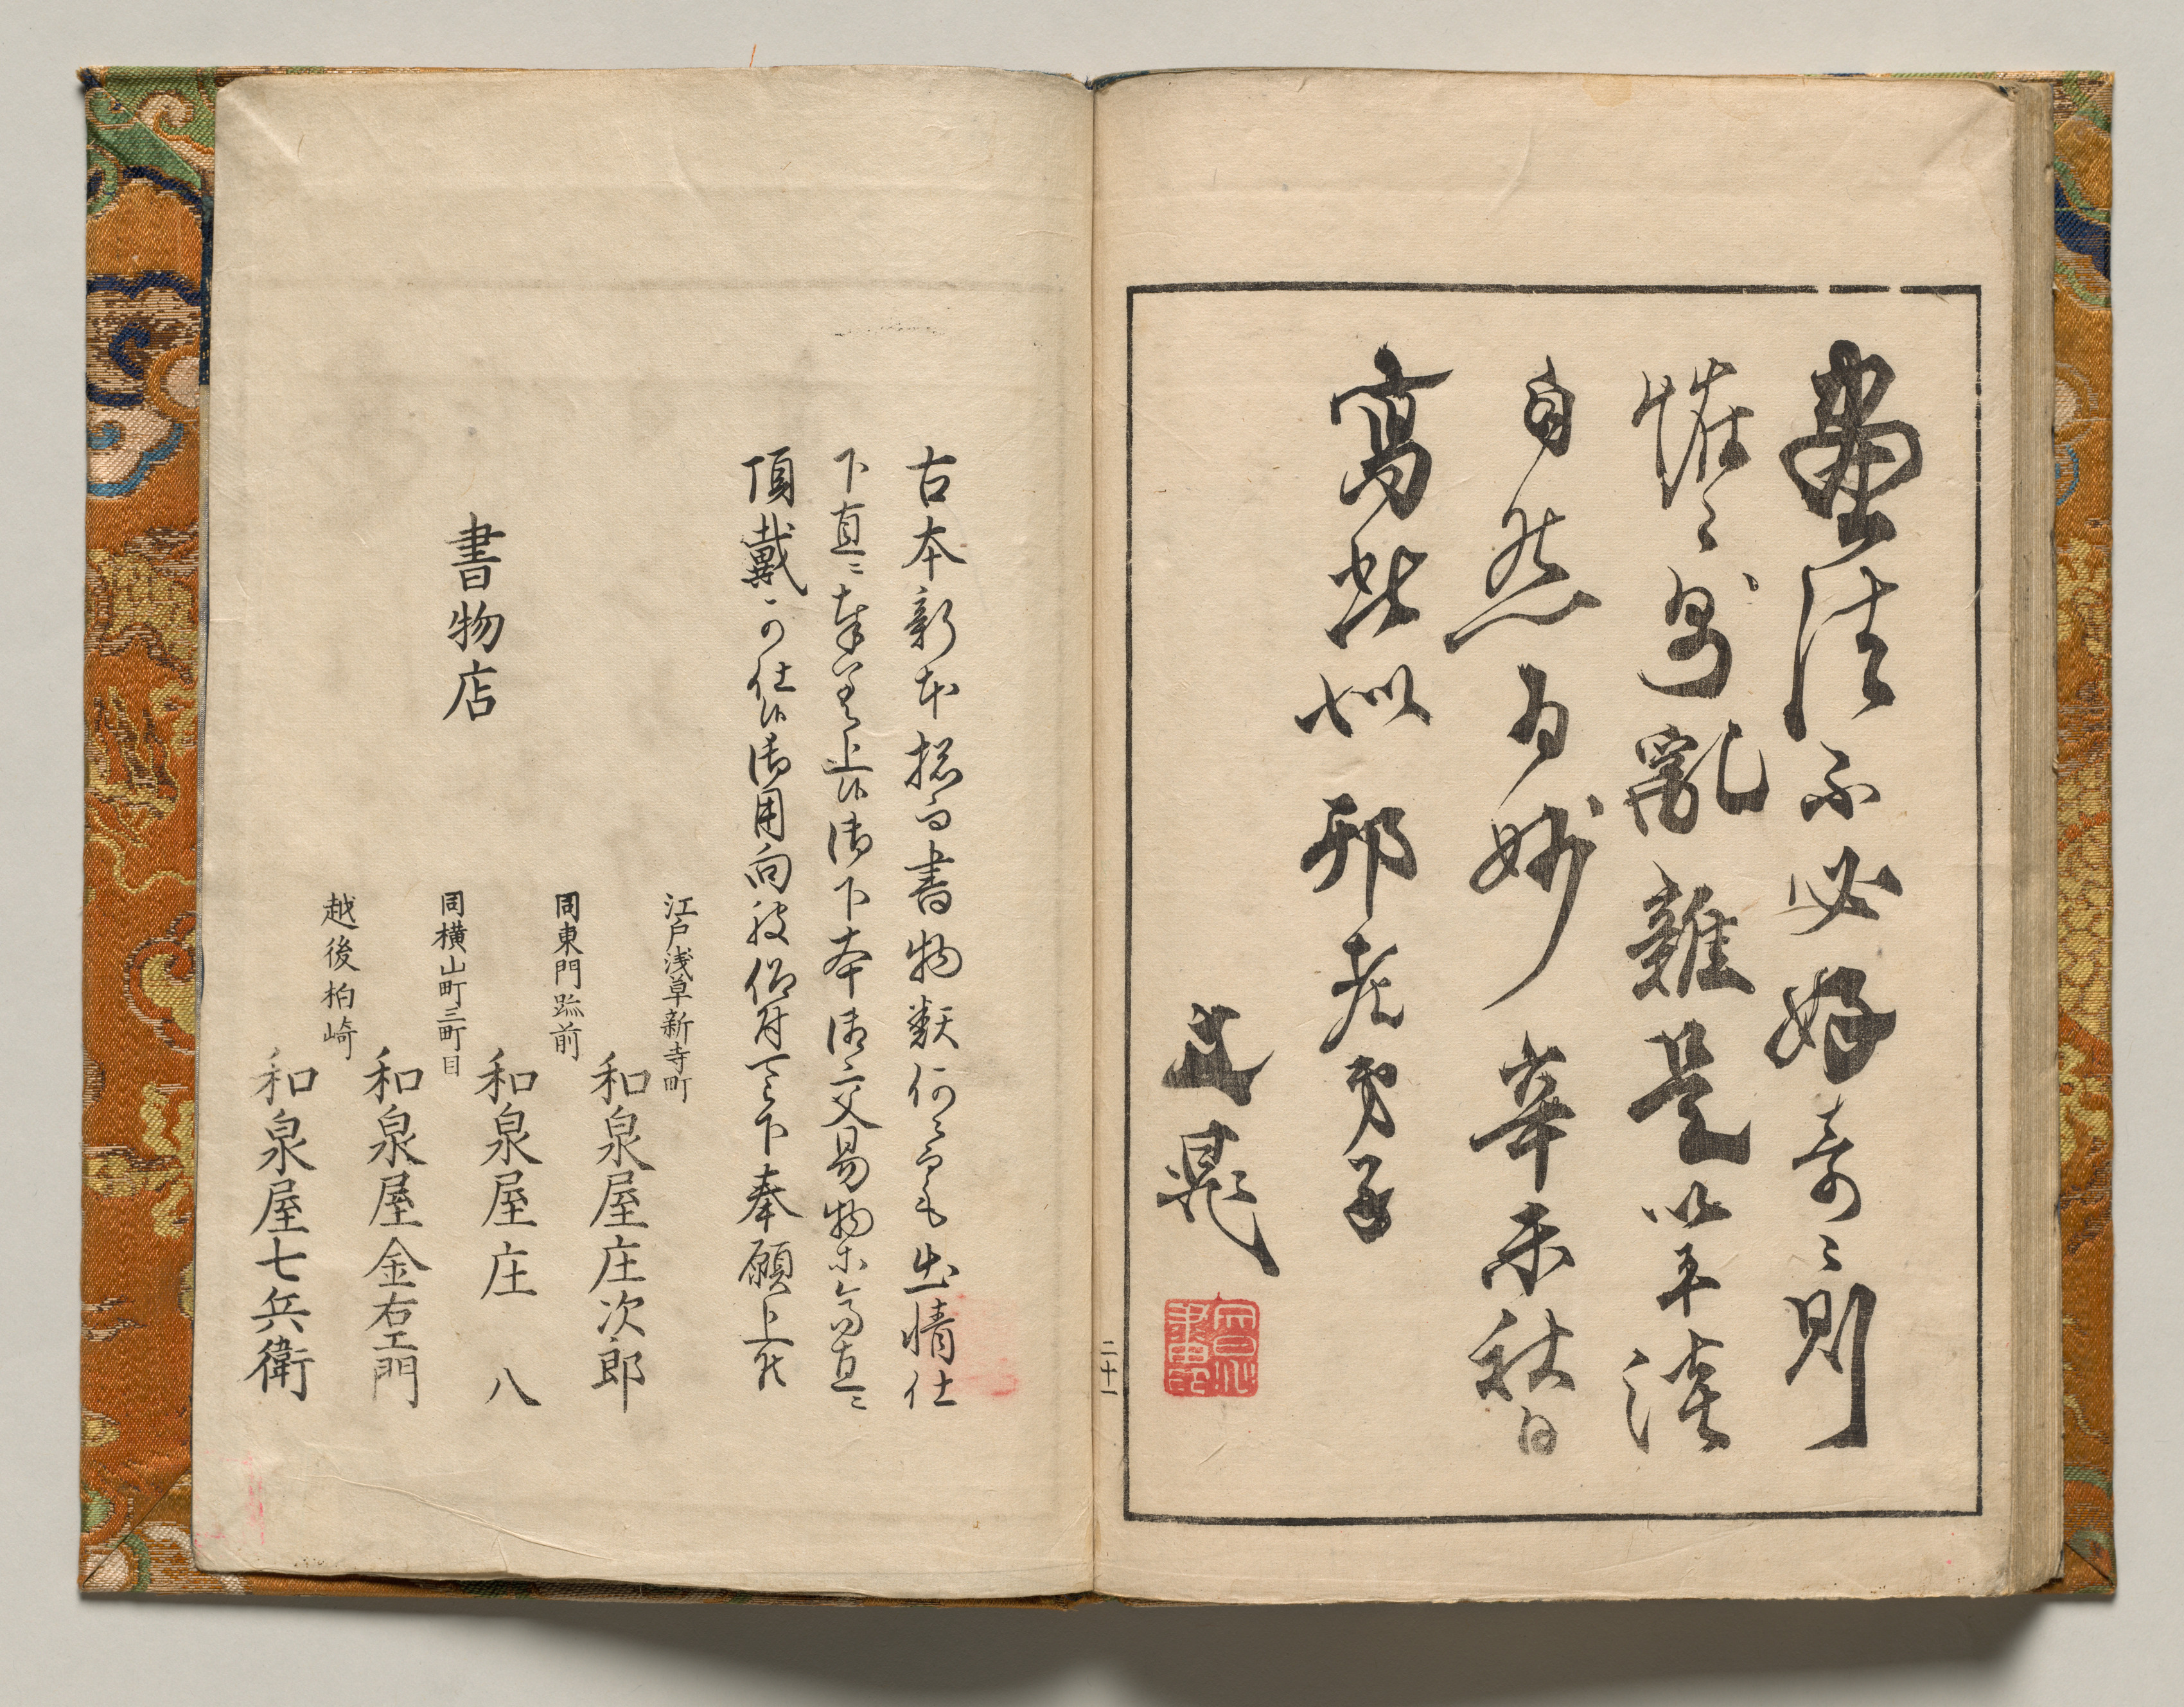 畫法不必好奇〻則
怪〻多亂雜是以平淡
自然為妙辛未秋日
寫哉似邪老男子
文晁
二十一
古本新本捴而書物類何〻而も出情仕
下直ニ奉差上候御下本御交易物等高直ニ
頂戴可仕候御用向被仰付可被下奉願上候
書物店
江戸浅草新寺町
和泉屋庄次郎
同東門跡前
和泉屋庄八
同横山町三町目
和泉屋金右エ門
越後柏崎
和泉屋七兵衛